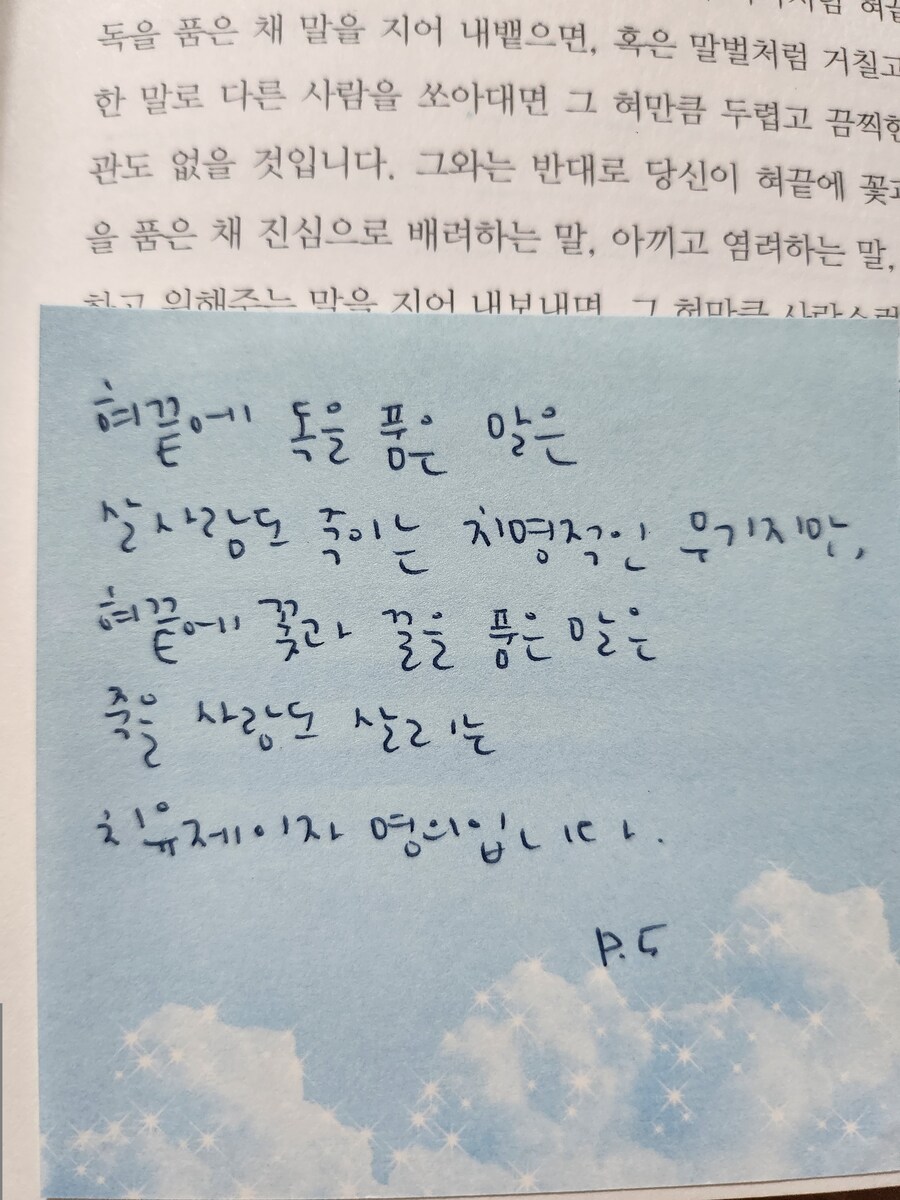 독을 품은 채 말을 지어 내뱉으면, 혹은 말벌처럼 거칠고
한 말로 다른 사람을 쏘아대면 그 혀만큼 두렵고 끔찍한
관도 없을 것입니다. 그와는 반대로 당신이 혀끝에 꽃과
을 품은 채 진심으로 배려하는 말, 아끼고 염려하는 말,
하고 위해주는 말을 지어 내보내면, 그 혀만큼
혀끝에 독을 품은 말은
살 사람도 죽이는 치명적인 무기지만,
혀끝에 꽃과 꿀을 품은 말은
죽을 사람도 살리는
치유제이자 명의입니다.
P.5